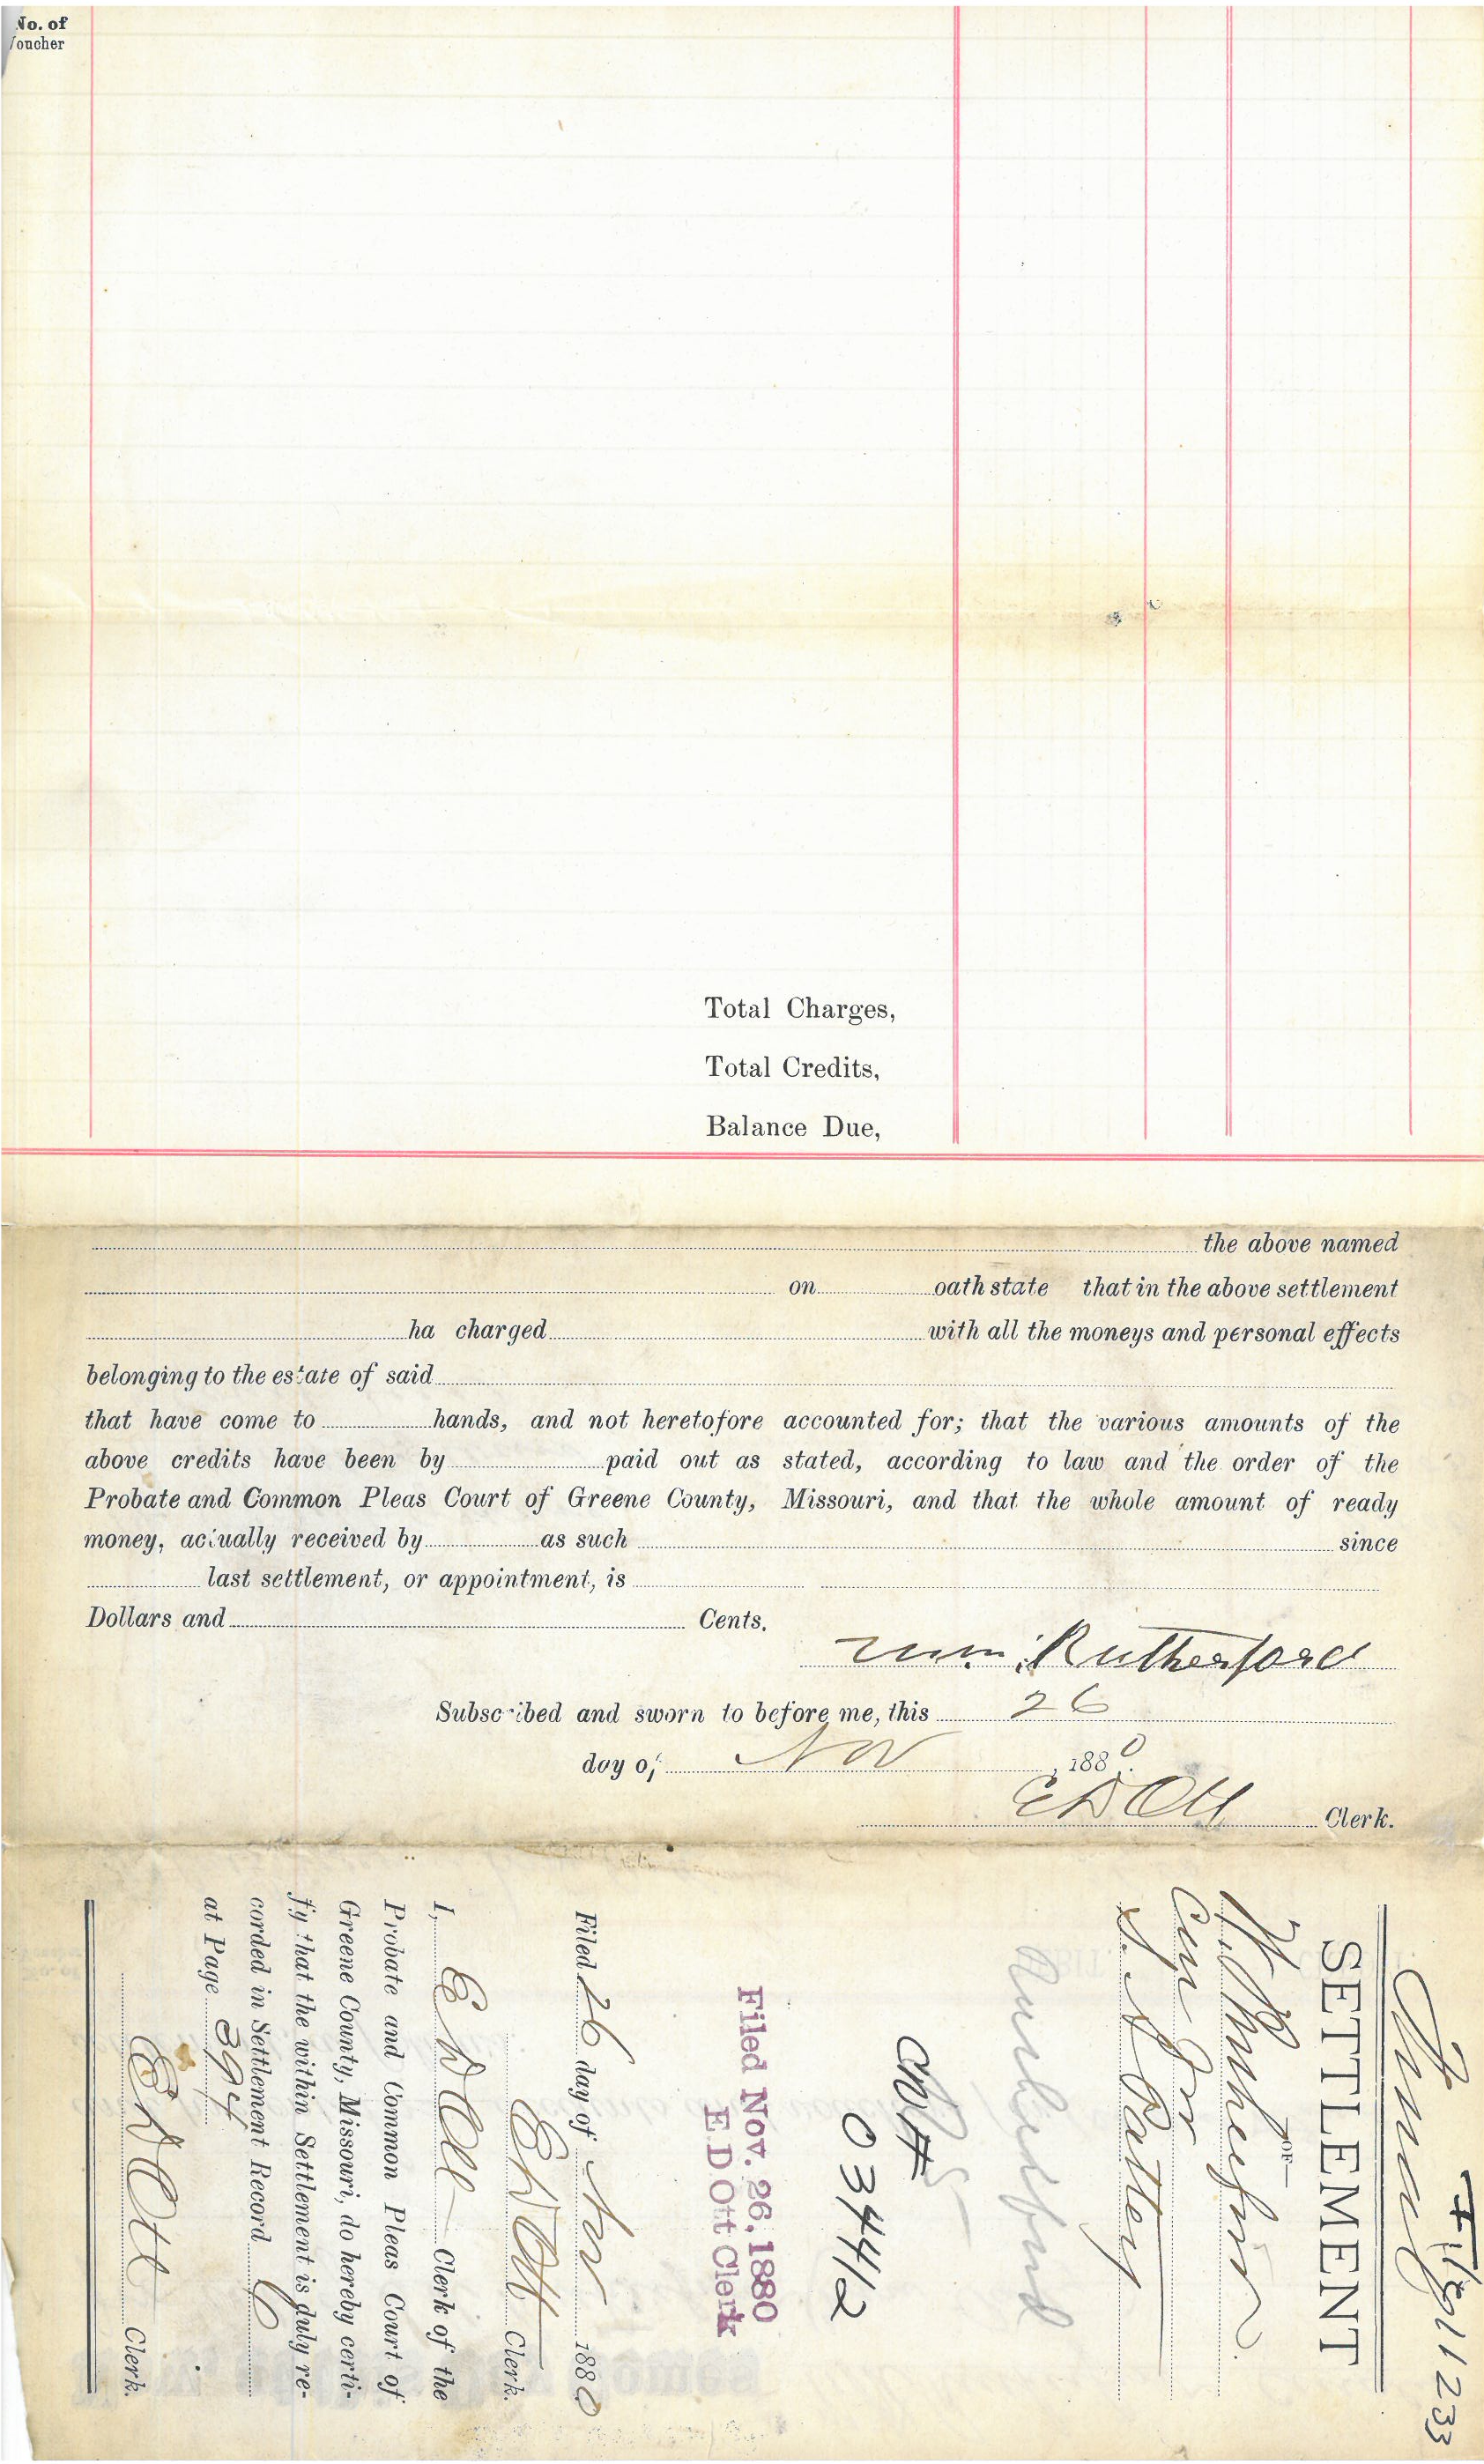 No. of
Voucher
Total Charges,
Total Credits,
Balance Due,
the above named
on oath state that in the above settlement
ha charged with all the moneys and personal effects
belonging to the estate of said
that have come to hands, and not heretofore accounted for; that the various amounts of the
above credits have been by paid out as stated, according to law and the order of the
Probate and Common Pleas Court of Greene County, Missouri, and that the whole amount of ready
money, actually received by as such since
last settlement, or appointment, is
Dollars and Cents.
Wm. Rutherford
Subscribed and sworn to before me, this 26
day of Nov, 1880.
E D Ott Clerk.
File 11233
SETTLEMENT
OF
Rutherford
CN#
03442
Filed Nov. 26, 1880
E D Ott Clerk
Filed 26 day of Nov 1880
E D Ott Clerk.
I, E D Ott Clerk of the
Probate and Common Pleas Court of
Greene County, Missouri, do hereby certi-
fy that the within Settlement is duly re-
corded in Settlement Record
at Page 394
E D Ott Clerk.